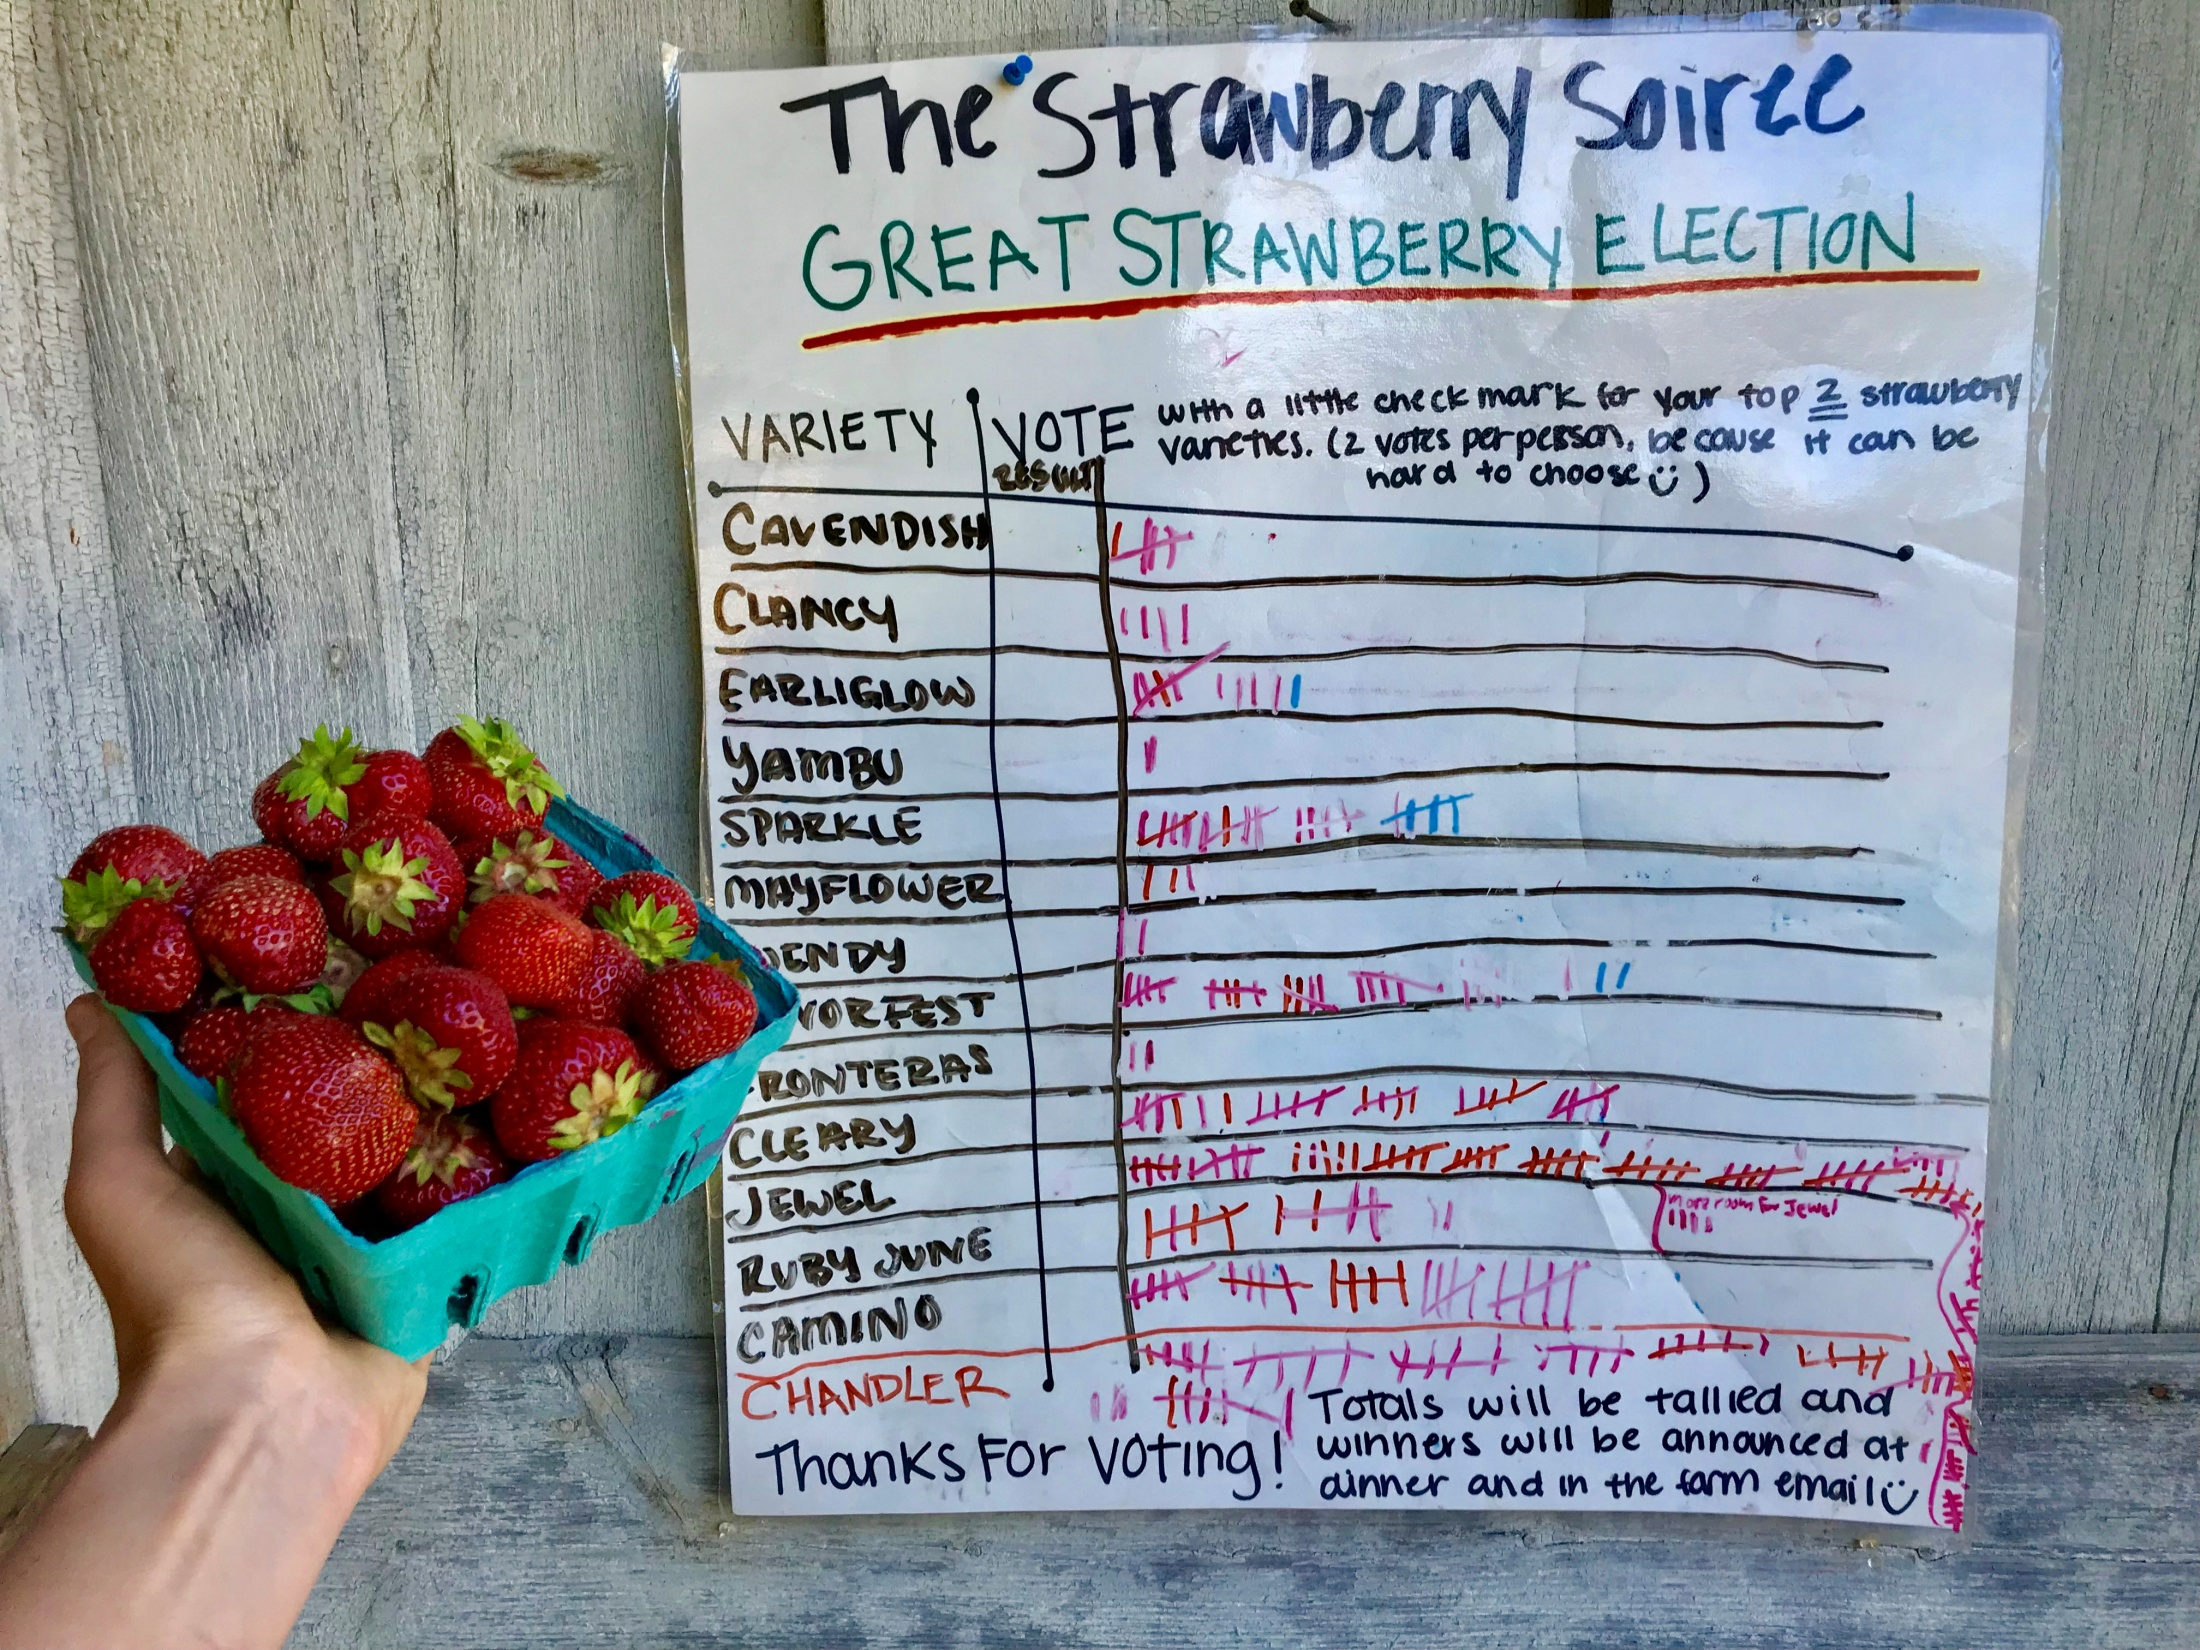 The Strawberry Soiree
GREAT STRAWBERRY ELECTION
VARIETY VOTE with a little check mark for your top 2 strawberry
varieties. (2 votes per person, because it can be
hard to choose )
RESULT
CAVENDISH
CLANCY
EARLIGLOW
YAMBU
SPARKLE
MAYFLOWER
ENDY
VORFEST
RONTERAS
CLEARY
JEWEL
more room for Jewel
RUBY JUNE
CAMINO
CHANDLER
Thanks For Voting!
Totals will be tallied and
winners will be announced at
dinner and in the farm email